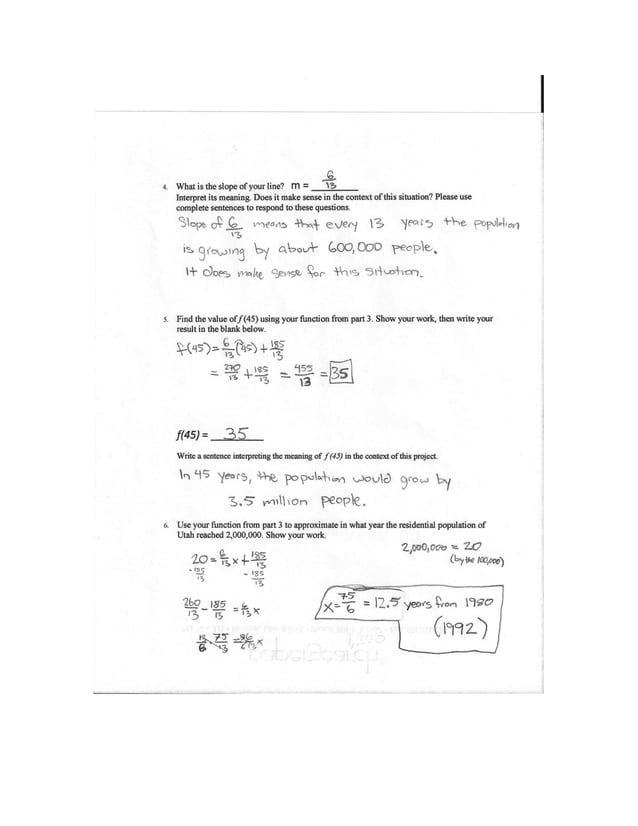 4. What is the slope of your line? m = 6/13
Interpret its meaning. Does it make sense in the context of this situation? Please use
complete sentences to respond to these questions.
Slope of 6/13 means that every 13 years the population
is growing by about 600,000 people.
It does make sense for this situation.
5. Find the value of f(45) using your function from part 3. Show your work, then write your
result in the blank below.
f(45) = 6/13(45) + 185/13
= 270/13 + 185/13 = 455/13 = 35
f(45) = 35
Write a sentence interpreting the meaning of f(45) in the context of this project.
In 45 years, the population would grow by
3.5 million people.
6. Use your function from part 3 to approximate in what year the residential population of
Utah reached 2,000,000. Show your work.
2,000,000 = 20
(by the 100,000)
20 = 6/13 x + 185/13
- 185/13 - 185/13
260/13 - 185/13 = 6/13 x
x = 75/6 = 12.5 years from 1980
(1992)
13/6 · 75/13